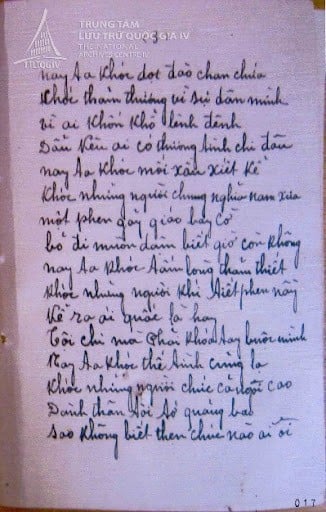 TRUNG TÂM
LƯU TRỮ QUỐC GIA IV
THE NATIONAL
ARCHIVES CENTRE IV
TTLTQGIV
nay ta khóc dọt đào chan chứa
Khóc thảm thương vì sự dân mình
vì ai khốn khổ lênh đênh
Dẫu kêu ai có thương tình chi đâu
nay ta khóc mối xâu xiết kể
khóc những người chung nghĩa nam xưa
một phen gậy giáo bay cờ
bỏ đi muôn dám biết giờ còn không
nay ta khóc tấm lòng thảm thiết
khóc những người khí tiết phen nầy
kể ra ai quấc là hay
Tội chi mà phải khóa tay buộc mình
Nay ta khóc thế tình cũng lạ
khóc những người chức cả ngôi cao
Danh thần tôi tớ quảng bao
sao không biết thẹn chút nào ai ôi
017